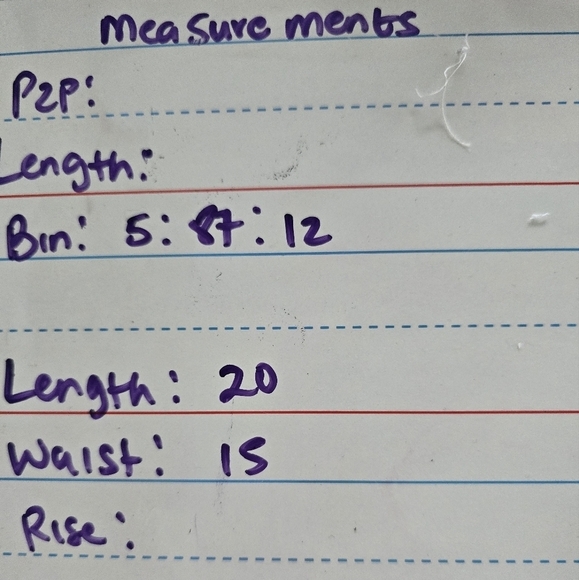 Measurements
P2P:
Length:
Bin: 5: 87: 12
Length: 20
Waist: 15
Rise: